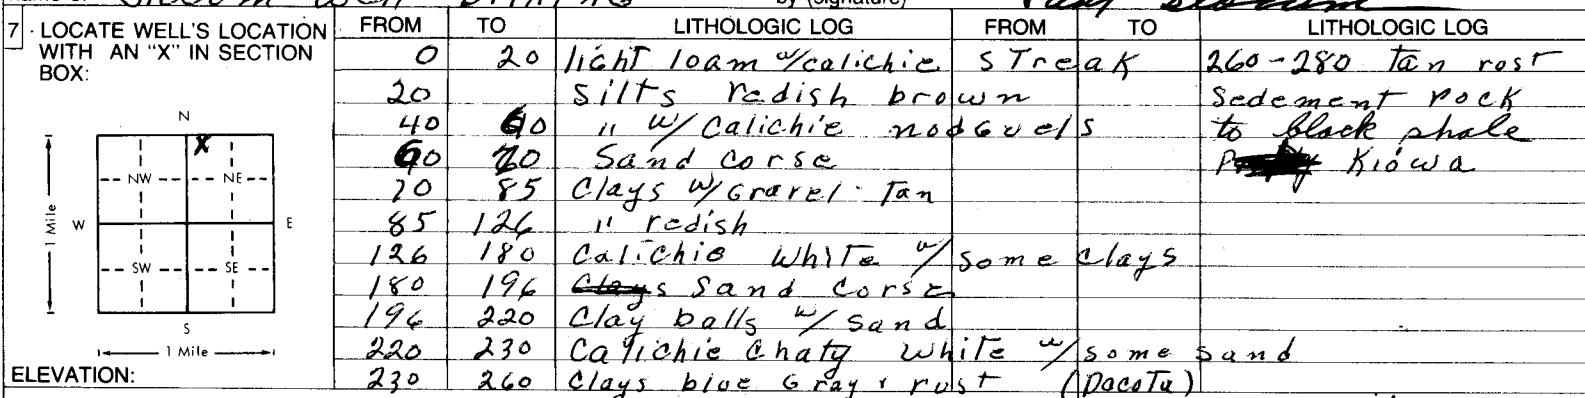 by (signature)
7 LOCATE WELL'S LOCATION WITH AN "X" IN SECTION BOX:
FROM TO LITHOLOGIC LOG FROM TO LITHOLOGIC LOG
0 20 light loam w/calichie STreak 260-280 Tan rost
20 Silts redish brown Sedement rock
40 60 " w/ Calichie nodGuels to black shale
60 70 Sand Corse Kiowa
70 85 Clays w/Gravel Tan
85 126 " redish
126 180 Calichie White w/some clays
180 196 Sand Corse
196 220 Clay balls w/ sand
220 230 Calichie Chaty White w/some sand
230 260 Clays blue Gray + rust (DacoTa)
N
X
NW NE
W E
1 Mile
SW SE
S
1 Mile
ELEVATION: